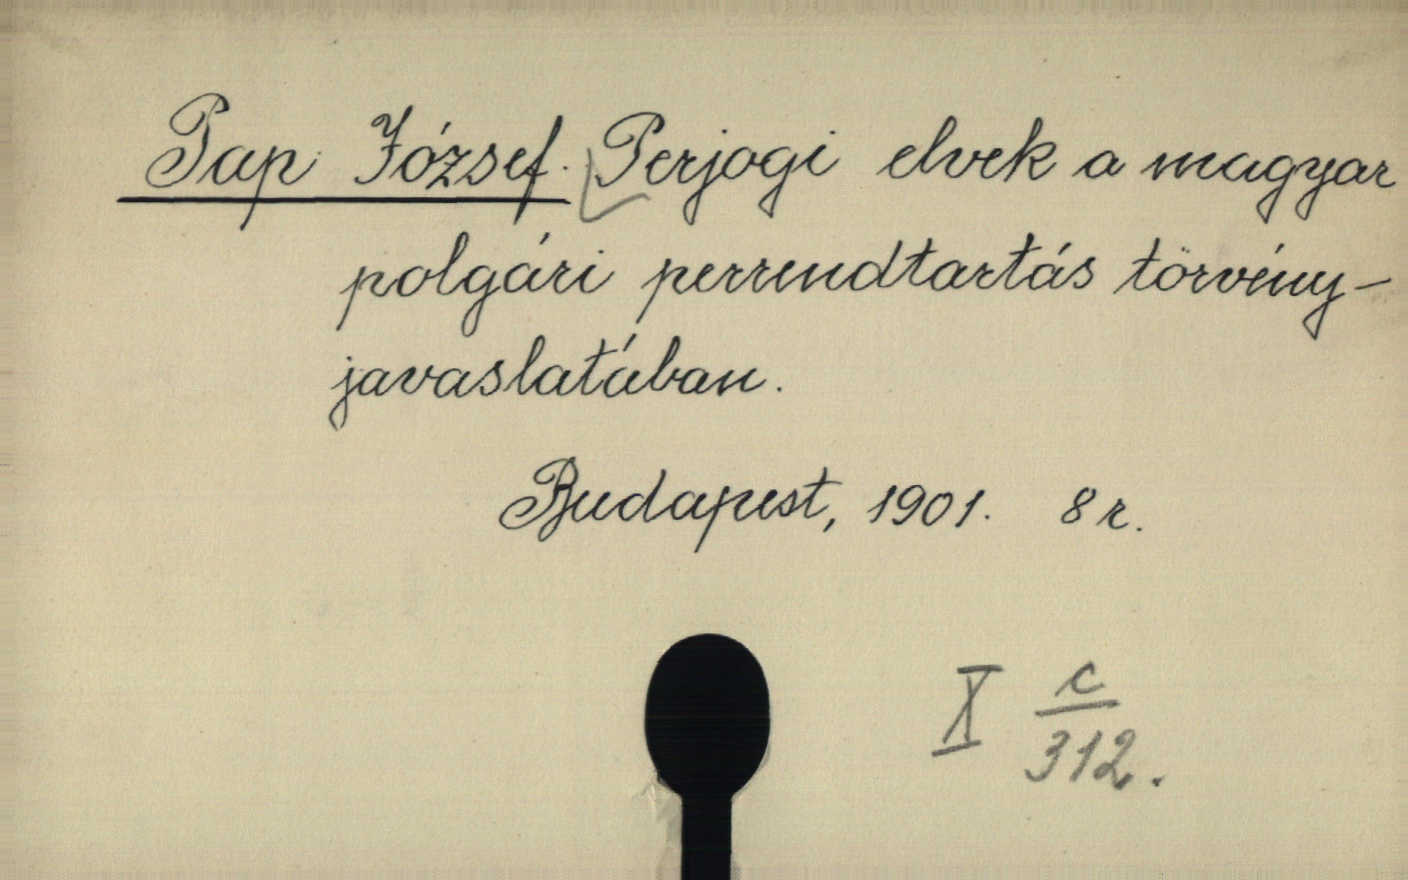 Pap József. Perjogi elvek a magyar
polgári perrendtartás törvény-
javaslatában.
Budapest, 1901. 8 r.
X c
312.